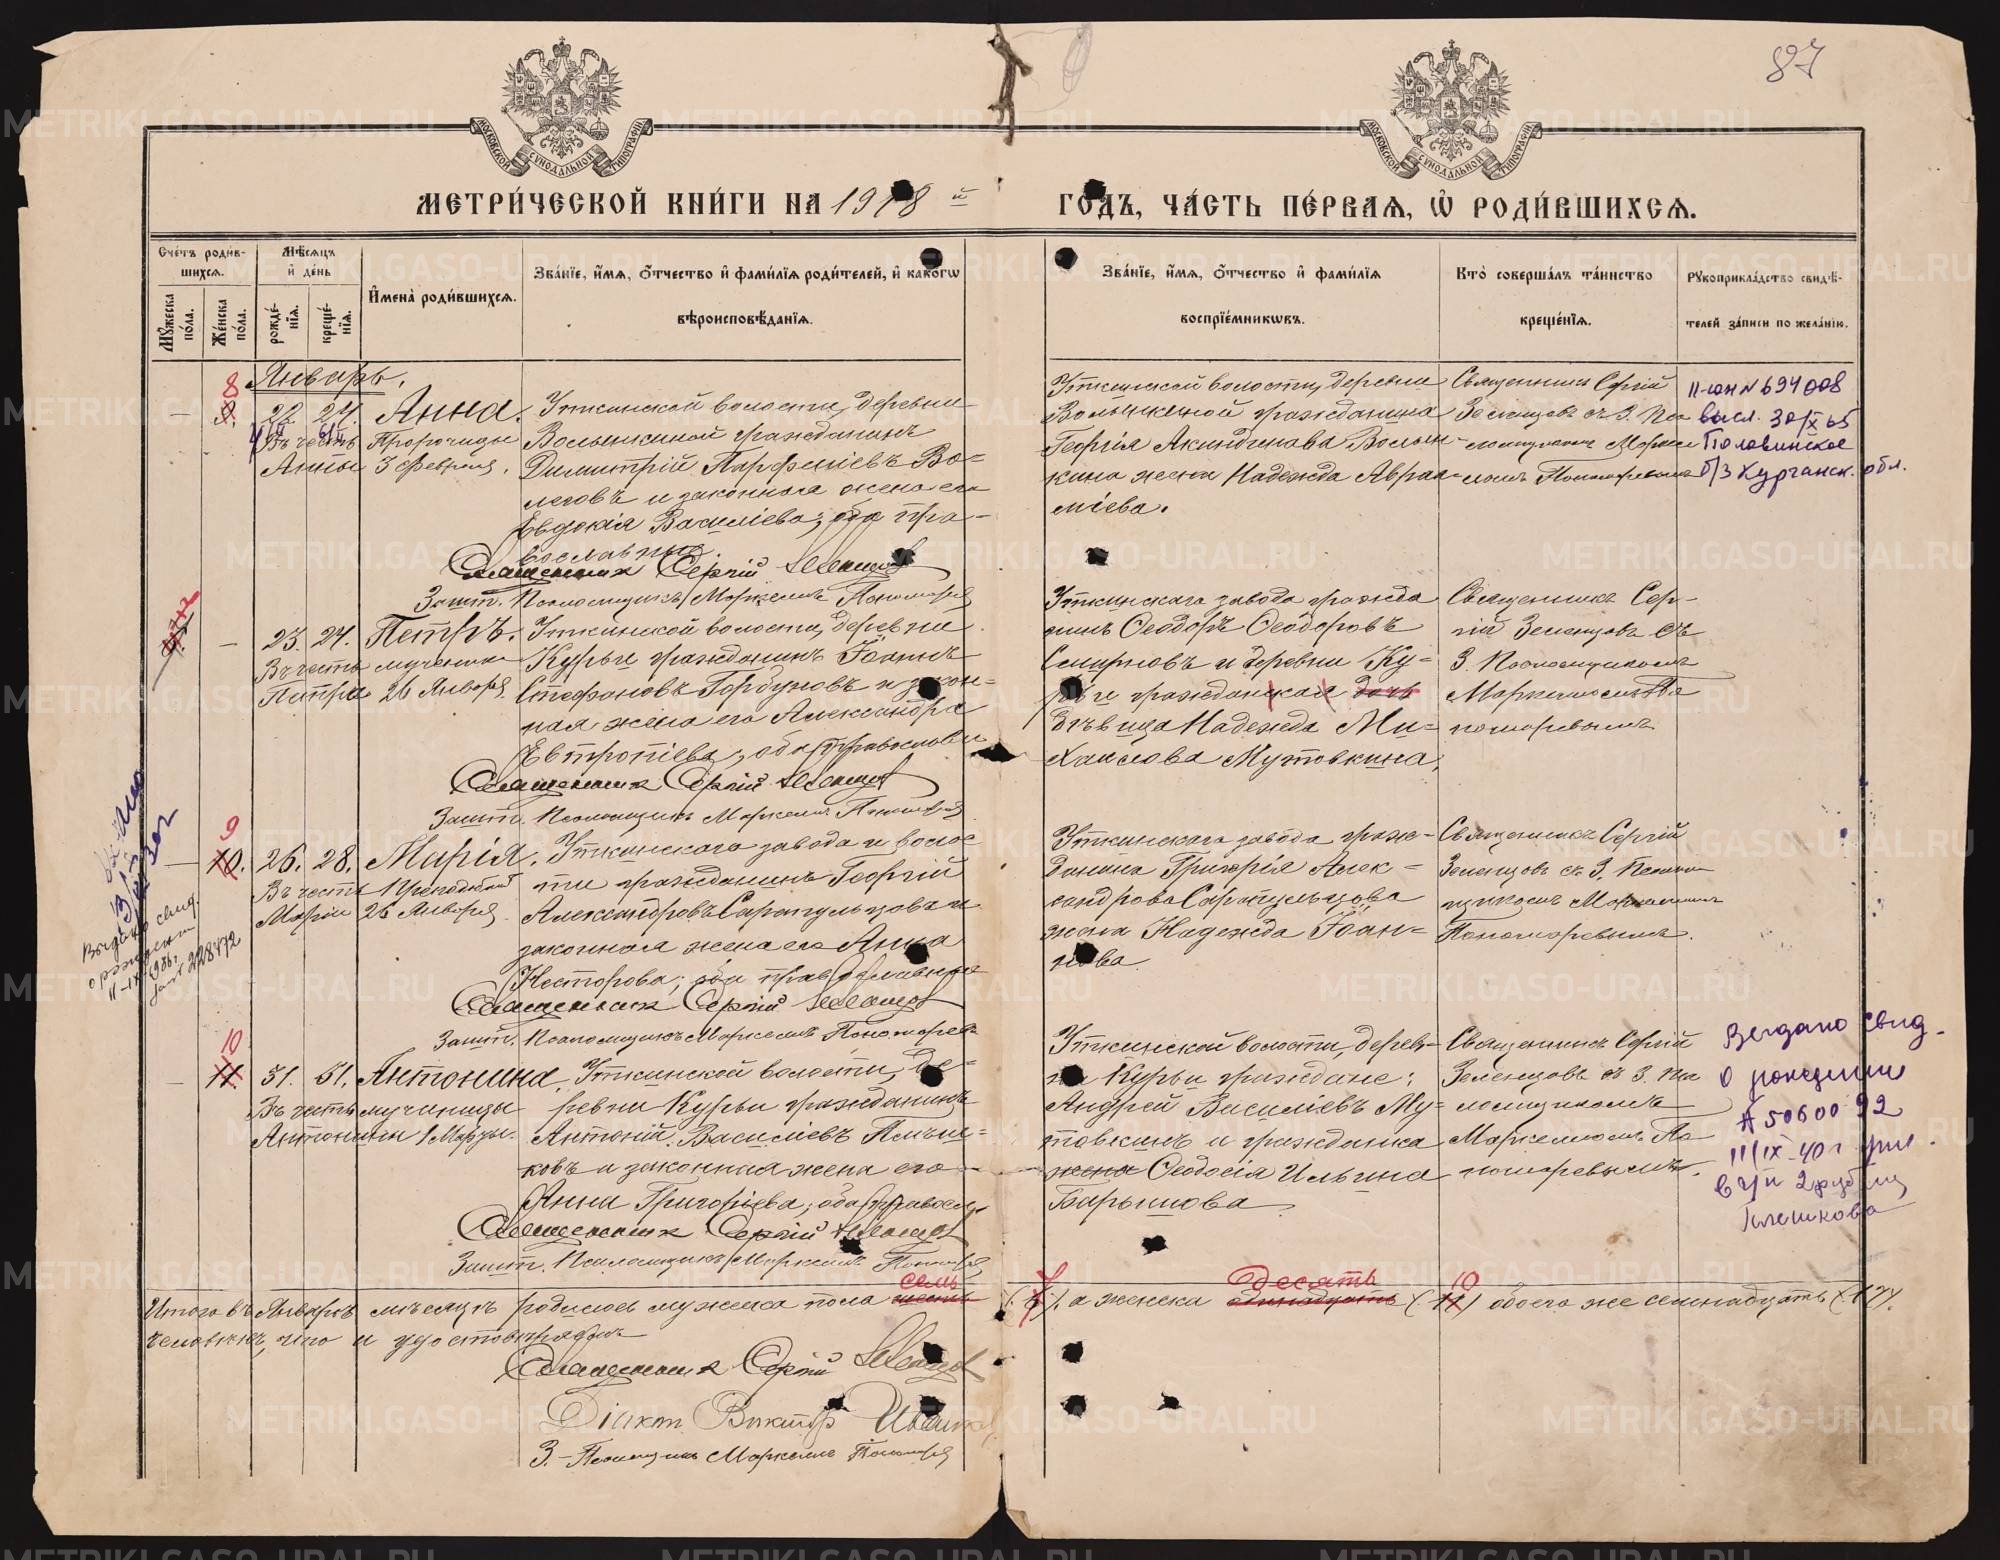 87
МОСКОВСКОЙ СУНОДАЛЬНОЙ ТИПОГРАФІИ
МОСКОВСКОЙ СУНОДАЛЬНОЙ ТИПОГРАФІИ
МЕТРИ́ЧЕСКОЙ КНИ́ГИ НА 1918 й ГО́ДЪ, ЧА́СТЬ ПЕ́РВАЯ, Ѡ҆ РОДИ́ВШИХСЯ.
Сче́тъ роди́вшихся.
Мꙋ́жеска по́ла.
Же́нска по́ла.
Мѣ́сяцъ и҆ де́нь
рожде́нїя.
креще́нїя.
И҆мена̀ роди́вшихся.
Зва́нїе, и҆́мя, ѻ҆́тчество и҆ фами́лїя роди́телей, и҆ како́гѡ
вѣроисповѣ́данїя.
Зва́нїе, и҆́мя, ѻ҆́тчество и҆ фами́лїя
воспрїе́мникѡвъ.
Кто̀ соверша́лъ та́инство
креще́нїя.
Рꙋкоприкла́дство свидѣ́-
телей за́писи по жела́нїю.
Январь.
8
22 24. Анна.
Въ честь Пророчицы
Анны 3 Февраля.
Уткинской волости, деревни
Волынкиной гражданинъ
Димитрій Парфеніевъ Во-
леговъ и законная жена его
Евдокія Василіева; оба пра-
вославные
Священникъ Сергій Зеленцов
Зашт. Псаломщикъ Маркеллъ Пономарев
Уткинской волости, деревни
Волынкиной гражданина
Георгія Акиндинова Волын-
кина жена Надежда Авраа-
міева.
Священникъ Сергій
Зеленцовъ съ З. Пса
ломщикомъ Маркел
ломъ Пономаревымъ
II-юн № 694008
высл. 30/IX 65
Половинское
б/З Курганск. обл.
7
23. 24. Петръ.
Въ честь мученика
Петра 26 Января.
Уткинской волости, деревни
Курьи гражданинъ Іоаннъ
Стефановъ Горбуновъ и закон-
ная жена его Александра
Евтропіева, оба православн
Священникъ Сергій Зеленцов
Зашт. Псаломщикъ Маркеллъ Пономарев
Уткинскаго завода гражда
нинъ Ѳеодоръ Ѳеодоровъ
Смирновъ и деревни Ку-
рьи гражданская дочь
дѣвица Надежда Ми-
хаилова Мутовкина.
Священникъ Сер-
гій Зеленцовъ съ
З. Псаломщикомъ
Маркелломъ По
номаревымъ
9
10. 26. 28. Марія.
Въ честь Преподобной
Маріи 26 Января.
Уткинскаго завода и волос
ти гражданинъ Георгій
Александровъ Сарапульцовъ и
законная жена его Анна
Несторова; оба православные
Священникъ Сергій Зеленцов
Зашт. Псаломщикъ Маркеллъ Пономарев
Уткинскаго завода граж-
данина Григорія Алек-
сандрова Сарапульцова
жена Надежда Іоан-
нова
Священникъ Сергій
Зеленцовъ съ З. Псалом
щикомъ Маркелломъ
Пономаревымъ.
Выдано свид.
о рождении
11-IX-1956г.
228472
10
11 31. 31. Антонина.
Въ честь мученицы
Антонины 1 Марта.
Уткинской волости, де-
ревни Курьи гражданинъ
Антоній Василіевъ Плѣш-
ковъ и законная жена его
Анна Григоріева; оба правосл.
Священникъ Сергій Зеленцов
Зашт. Псаломщикъ Маркеллъ Пономарев
Уткинской волости, дерев-
ни Курьи граждане:
Андрей Василіевъ Му-
товкинъ и гражданка
жена Ѳеодосія Ильина
Барышова
Священникъ Сергій
Зеленцовъ съ З. Пса
ломщикомъ
Маркелломъ По
номаревымъ.
Выдано свид.
о рождении
А 5060092
III/IX-40г
2 рубл
Плешкова
Итого въ Январѣ мѣсяцѣ родилось мужеска пола семь шесть (7), а женска десять одинадцать (10 11) обоего же семнадцать (17).
человекъ, что и удостовѣряемъ
Священникъ Сергій Зеленцов
Діакон Виктор Иванов
З. Псаломщикъ Маркеллъ Пономарев
METRIKI.GASO-URAL.RU